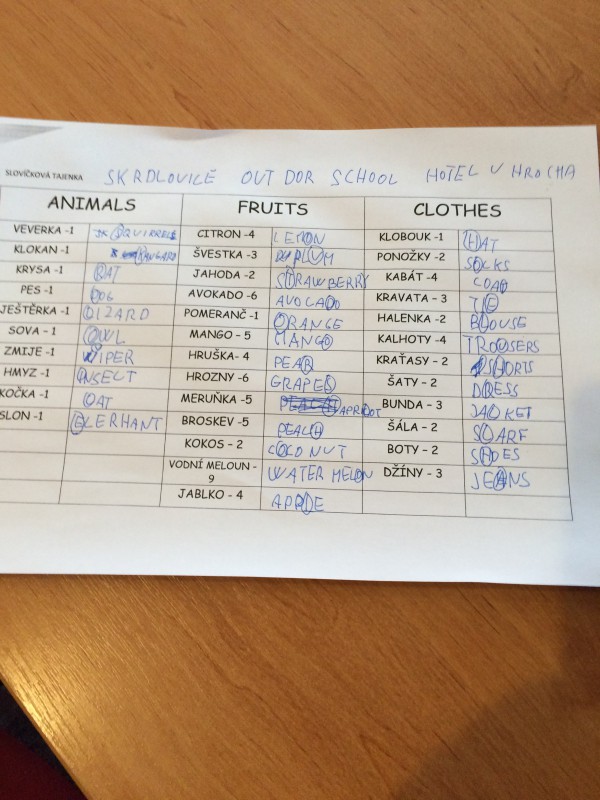 SLOVÍČKOVÁ TAJENKA SKRDLOVICE OUT DOR SCHOOL HOTEL U HROCHA
ANIMALS FRUITS CLOTHES
VEVERKA -1 SQUIRREL CITRON -4 LEMON KLOBOUK -1 HAT
KLOKAN -1 KANGARO ŠVESTKA -3 PLUM PONOŽKY -2 SOCKS
KRYSA -1 RAT JAHODA -2 STRAWBERRY KABÁT -4 COAT
PES -1 DOG AVOKADO -6 AVOCADO KRAVATA - 3 TIE
JEŠTĚRKA -1 LIZARD POMERANČ -1 ORANGE HALENKA -2 BLOUSE
SOVA - 1 OWL MANGO - 5 MANGO KALHOTY - 4 TROUSERS
ZMIJE -1 VIPER HRUŠKA- 4 PEAR KRAŤASY - 2 SHORTS
HMYZ - 1 INSECT HROZNY -6 GRAPES ŠATY - 2 DRESS
KOČKA -1 CAT MERUŇKA- 5 APRICOT BUNDA - 3 JACKET
SLON -1 ELERHANT BROSKEV -5 PEACH ŠÁLA - 2 SCARF
KOKOS - 2 COCO NUT BOTY - 2 SHOES
VODNÍ MELOUN - 9 WATER MELON DŽÍNY - 3 JEANS
JABLKO - 4 APPLE